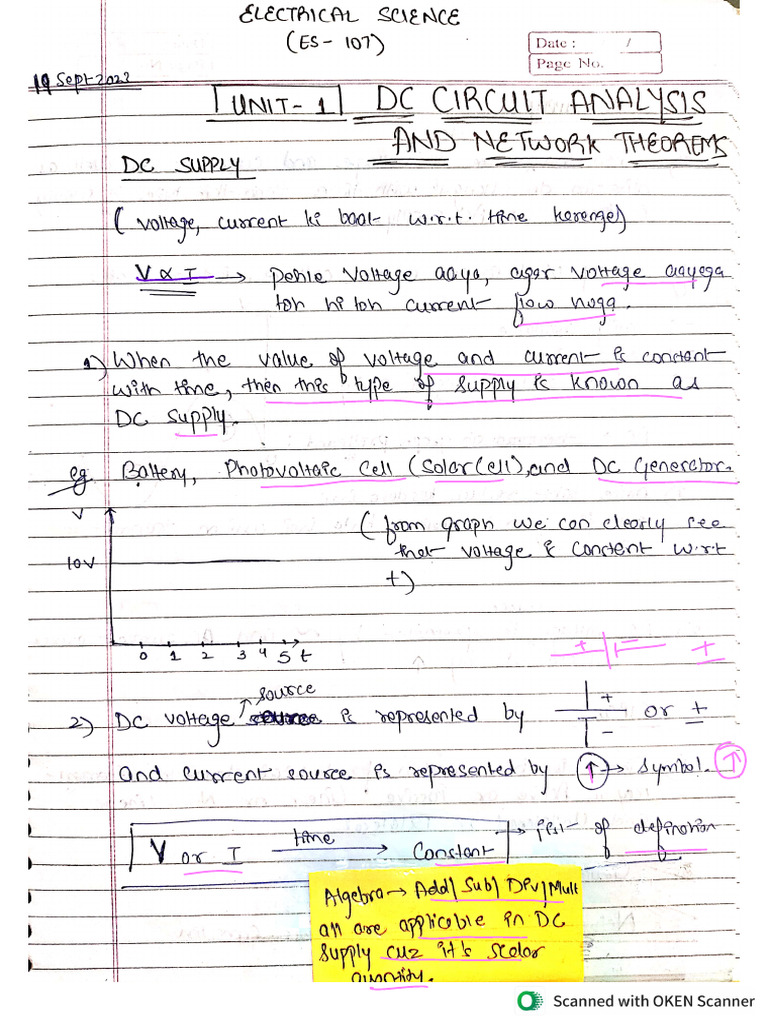 ELECTRICAL SCIENCE
(ES - 107)
Date : /
Page No.
19 Sept 2023
UNIT - 1 DC CIRCUIT ANALYSIS
AND NETWORK THEOREMS
DC SUPPLY
(voltage, current ki baat w.r.t. time karenge)
V ∝ I → Pehle Voltage aaya, agar voltage aayega
toh hi toh current flow hoga.
1) When the value of voltage and current is constant
with time, then this type of supply is known as
DC supply.
eg Battery, Photovoltaic Cell (Solar Cell), and DC Generator.
V
(from graph we can clearly see
that voltage is constant w.r.t
t)
10V
0 1 2 3 4 5 t
+ - +
source
2) DC voltage is represented by + - or +
and current source is represented by ↑ → symbol. ↑
V or I time → Constant → gist of definition
Algebra → Add/Sub/Div/Mult
all are applicable in DC
supply cuz it's scalar
quantity.
Scanned with OKEN Scanner